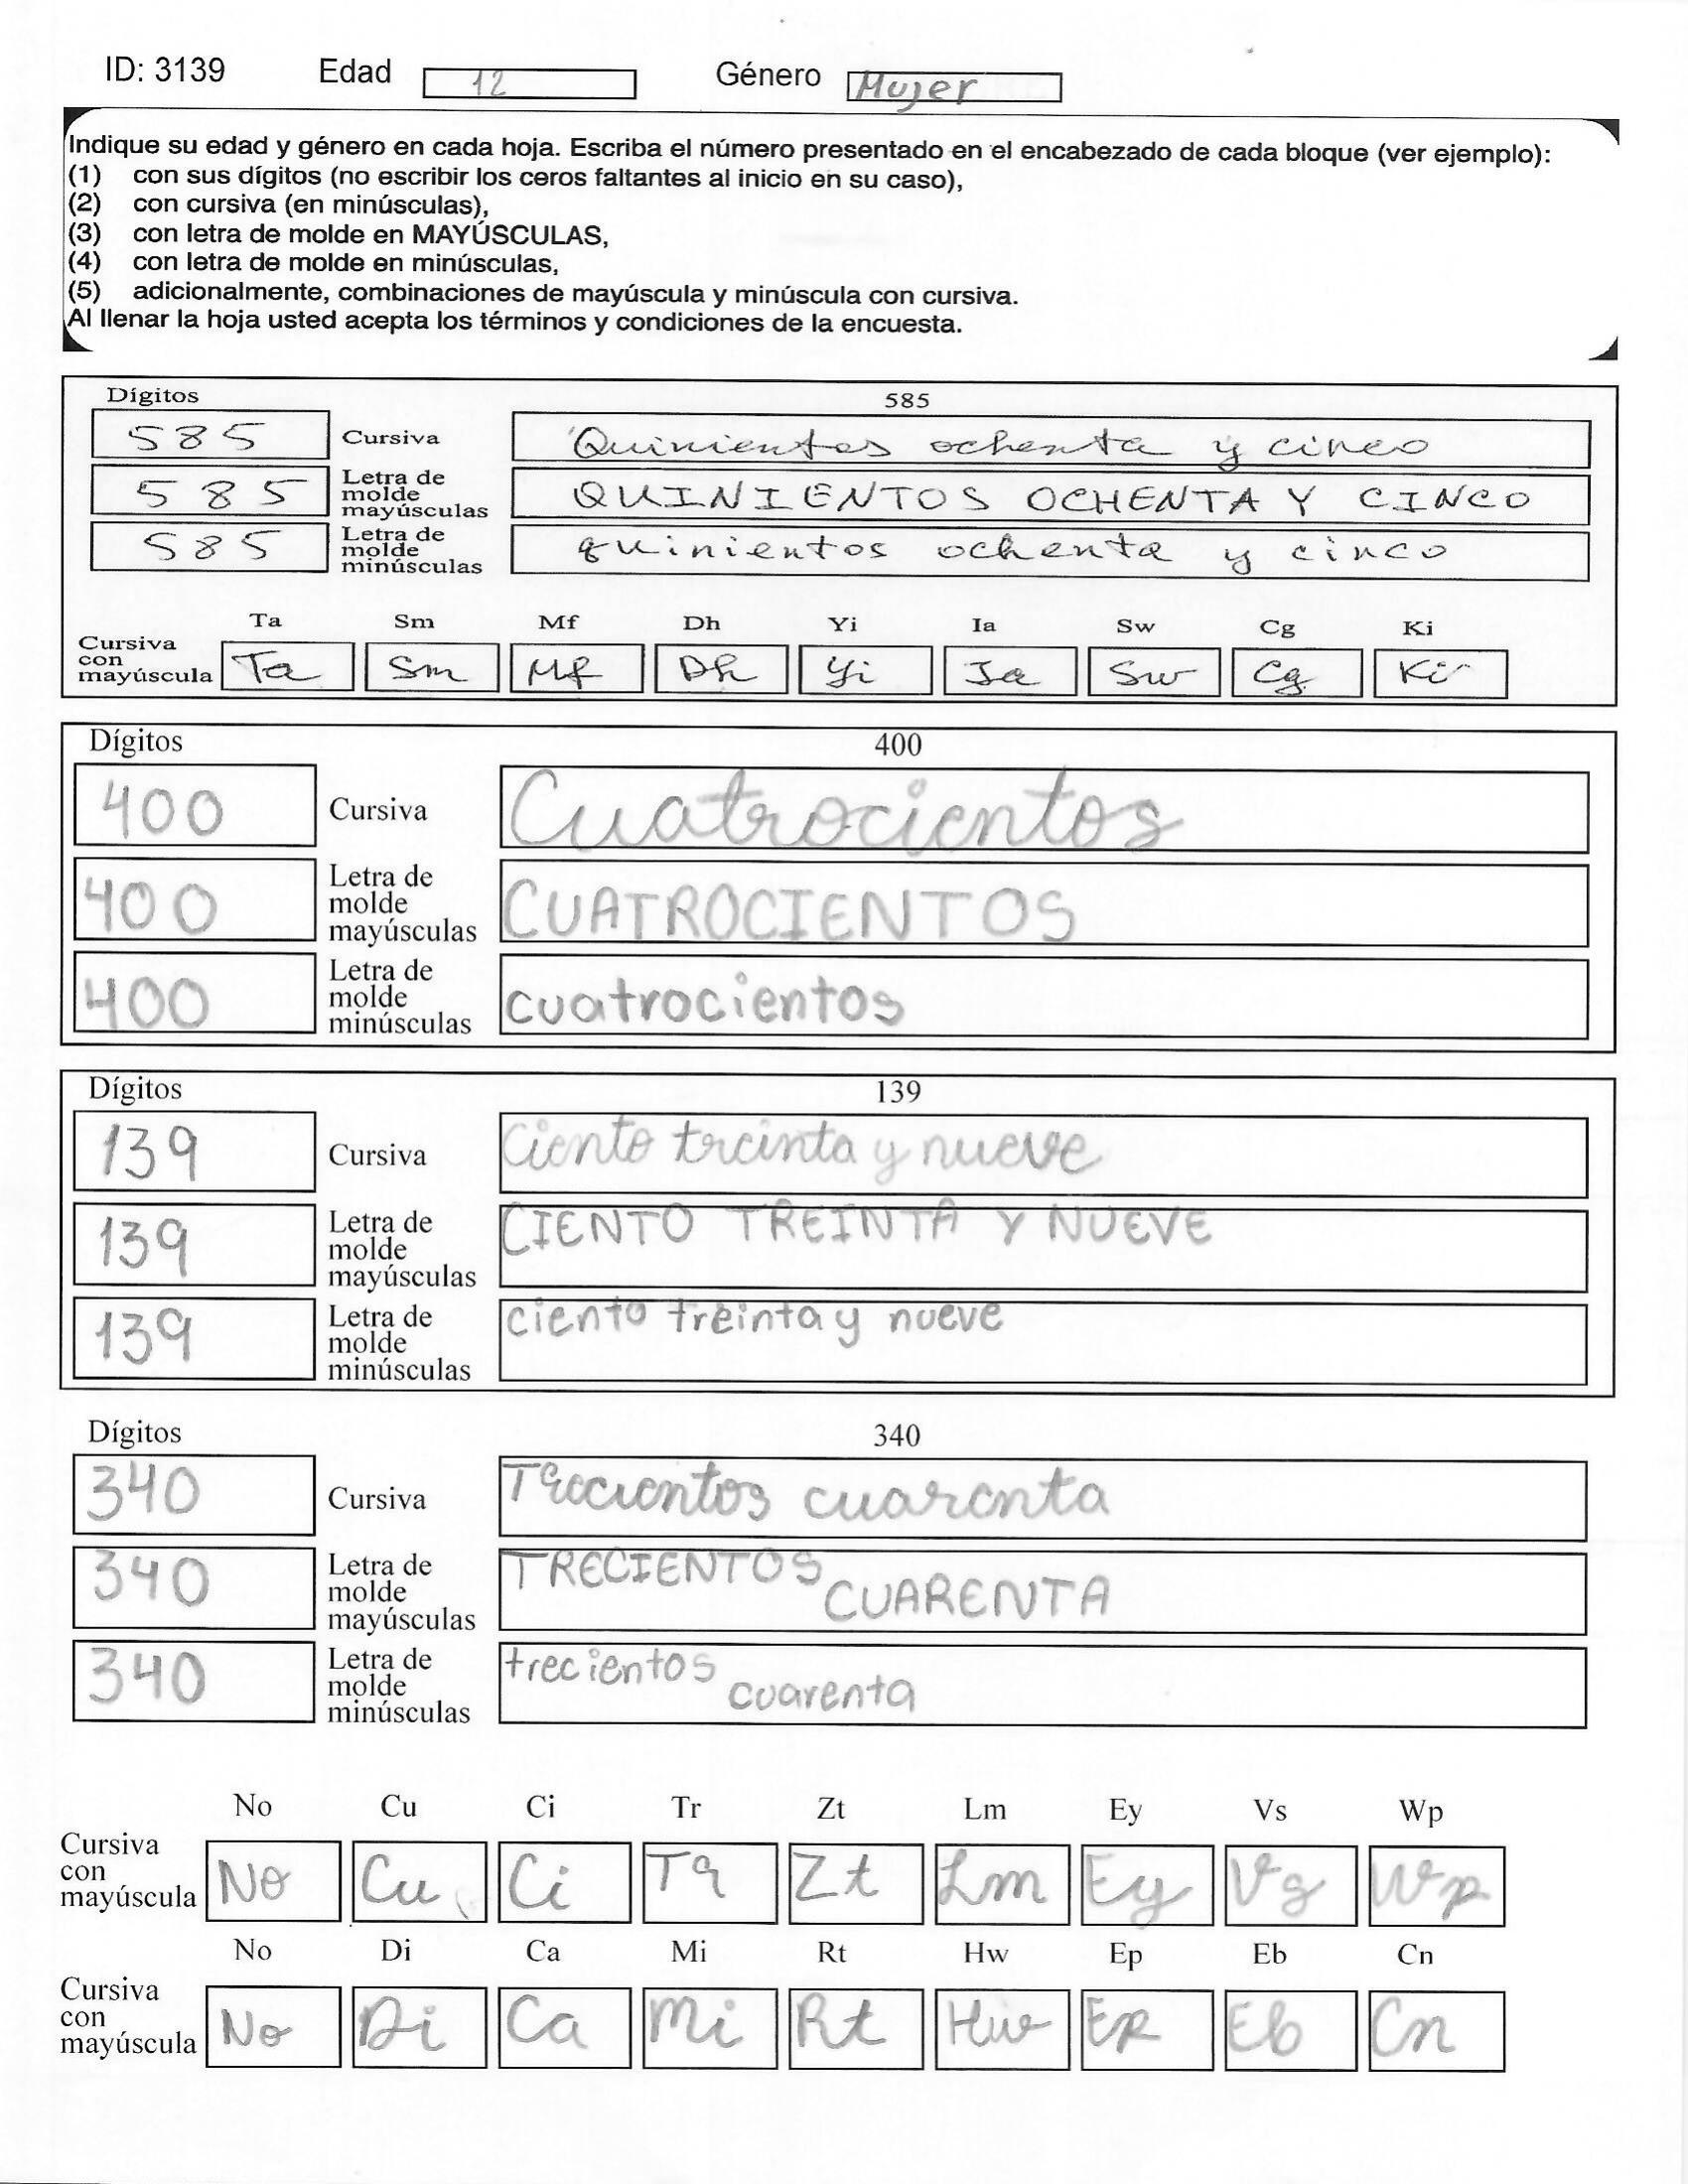 ID: 3139 Edad 12 Género Mujer
Indique su edad y género en cada hoja. Escriba el número presentado en el encabezado de cada bloque (ver ejemplo):
(1) con sus dígitos (no escribir los ceros faltantes al inicio en su caso),
(2) con cursiva (en minúsculas),
(3) con letra de molde en MAYÚSCULAS,
(4) con letra de molde en minúsculas,
(5) adicionalmente, combinaciones de mayúscula y minúscula con cursiva.
Al llenar la hoja usted acepta los términos y condiciones de la encuesta.
Dígitos 585
585 Cursiva Quinientos ochenta y cinco
585 Letra de molde mayúsculas QUINIENTOS OCHENTA Y CINCO
585 Letra de molde minúsculas quinientos ochenta y cinco
Ta Sm Mf Dh Yi Ia Sw Cg Ki
Cursiva con mayúscula Ta Sm Mf Dh Yi Ia Sw Cg Ki
Dígitos 400
400 Cursiva Cuatrocientos
400 Letra de molde mayúsculas CUATROCIENTOS
400 Letra de molde minúsculas cuatrocientos
Dígitos 139
139 Cursiva Ciento treinta y nueve
139 Letra de molde mayúsculas CIENTO TREINTA Y NUEVE
139 Letra de molde minúsculas ciento treinta y nueve
Dígitos 340
340 Cursiva Trecientos cuarenta
340 Letra de molde mayúsculas TRECIENTOS CUARENTA
340 Letra de molde minúsculas trecientos cuarenta
No Cu Ci Tr Zt Lm Ey Vs Wp
Cursiva con mayúscula No Cu Ci Tr Zt Lm Ey Vs Wp
No Di Ca Mi Rt Hw Ep Eb Cn
Cursiva con mayúscula No Di Ca Mi Rt Hw Ep Eb Cn